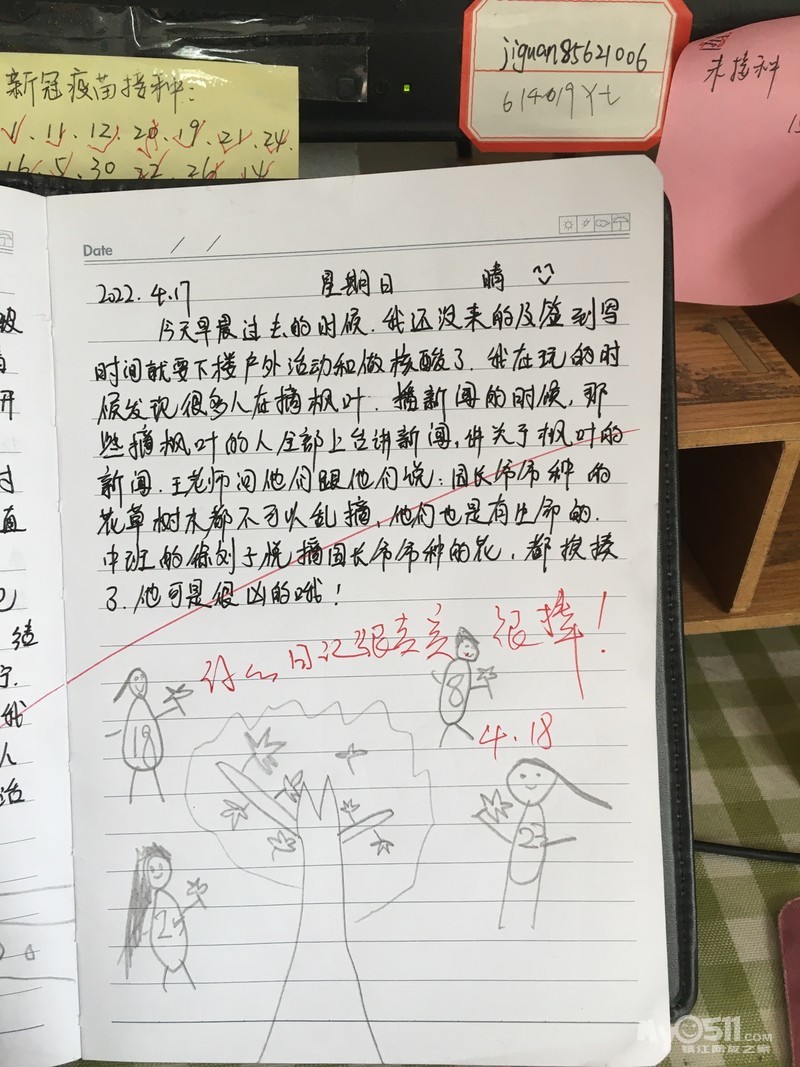 新冠疫苗接种:
1、11、12、20、19、21、24、
16、5、30、22、26、14
jiguan85621006
614019Yt
未接种
Date / /
2022.4.17 星期日 晴
今天早晨过去的时候.我还没来的及签到写
时间就要下楼户外活动和做核酸了.我在玩的时
候发现很多人在摘枫叶.播新闻的时候,那
些摘枫叶的人全部上台讲新闻,讲关于枫叶的
新闻.王老师问他们跟他们说:园长帅帅种的
花草树木都不可以乱摘,他们也是有生命的.
中班的徐刘子悦摘园长帅帅种的花,都挨揍
了.他可是很凶的哦!
日记很 很棒!
4.18
19
8
23
2
开
过
直
巴
结
宁.
我
人
活
My0511.COM
镇江网友之家